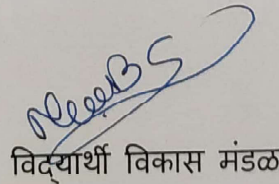 विद्यार्थी विकास मंडळ